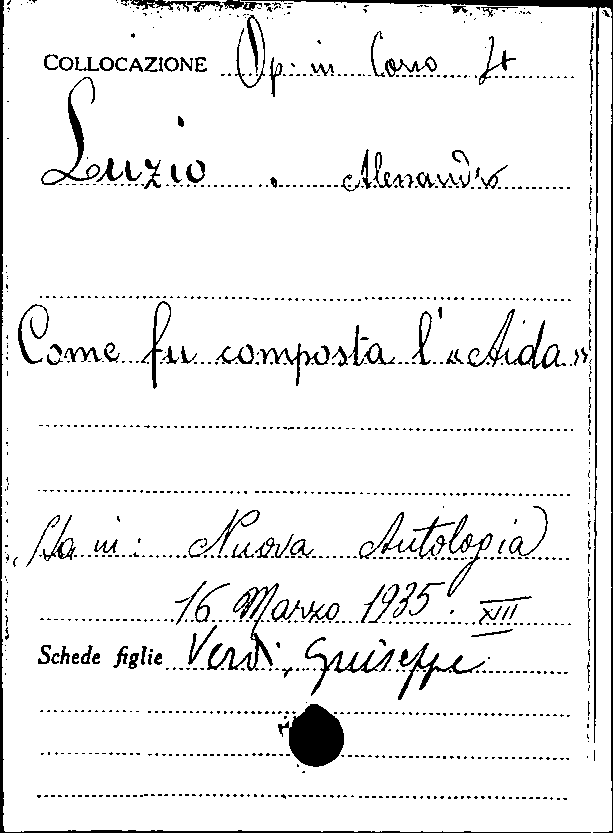 COLLOCAZIONE Op. in Corso
Luzio . Alessandro
Come fu composta l'«Aida»
Sta in: Nuova Antologia
16 Marzo 1935. XIII
Schede figlie Verdi, Giuseppe